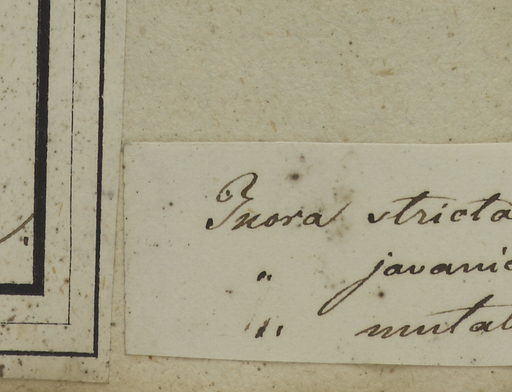 Ixora stricta
" javanic
" mutab